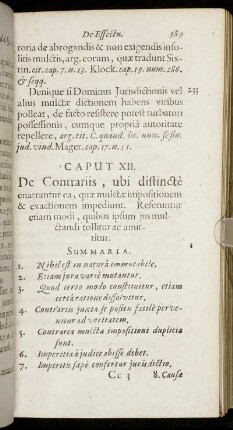 De Effectu. 389
toria de abrogandis & non exigendis inso-
litis mulctis, arg. eorum, quæ tradunt Six-
tin. cit. cap. 7. n. 13. Klock. cap. 19. num. 286.
& seqq.
Denique si Dominus Jurisdictionis vel 233
alius mulctæ dictionem habens viribus
polleat, de facto resistere potest turbatori
possessionis, eumque propriâ autoritate
repellere, arg. tit. C. quand. lic. unic. se sin.
jud. vind. Mager. cap. 17. n. 55.
CAPUT XII.
De Contrariis, ubi distinctè
enarrantur ea, quæ mulctæ impositionem
& exactionem impediunt. Referuntur
etiam modi, quibus ipsum jus mul-
ctandi tollitur ac amit-
titur.
SUMMARIA.
1. Nihil est in naturâ immutabile.
2. Etiam jura variè mutantur.
3. Quod certo modo constituitur, etiam
certâ ratione dissolvitur.
4. Contrariis juxta se positis facilè perve-
nitur ad veritatem.
5. Contraria mulctæ impositioni duplicia
sunt.
6. Imperitia à judice abesse debet.
7. Imperitis sæpè confertur jurisdictio,
Cc 3 8. Causæ